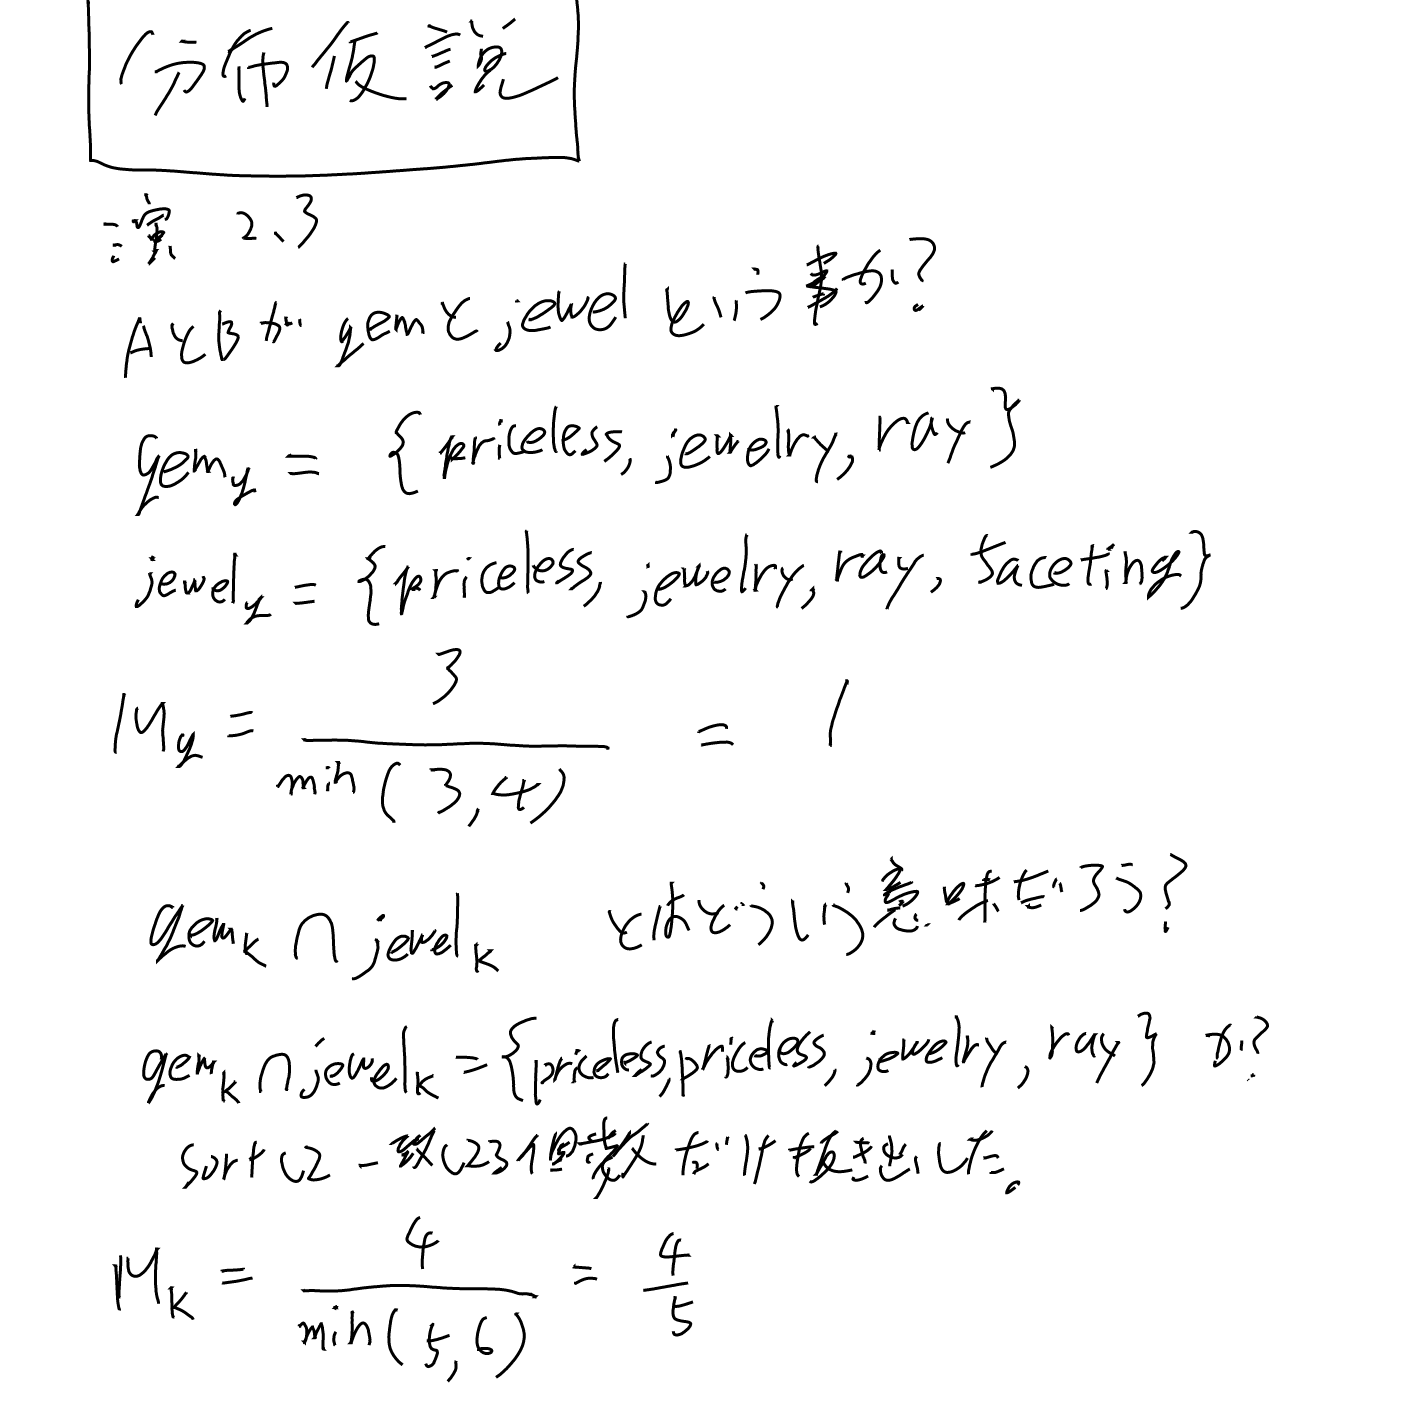 分布仮説
演 2、3
AとBが gemと jewel という事か?
gem_y = {priceless, jewelry, ray}
jewel_y = {priceless, jewelry, ray, faceting}
M_y = 3 / min(3,4) = 1
gem_k ∩ jewel_k とはどういう意味だろう?
gem_k ∩ jewel_k = {priceless, priceless, jewelry, ray} か?
sortして一致してる個数だけ抜き出した。
M_k = 4 / min(5,6) = 4/5